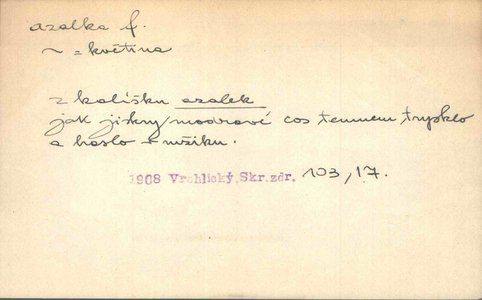 azalka f.
~ = květina
z kalíšku azalek
jak jiskry modravé cos temnem trysklo
a haslo v mžiku.
1908 Vrchlický, Skr.zdr. 103, 17.